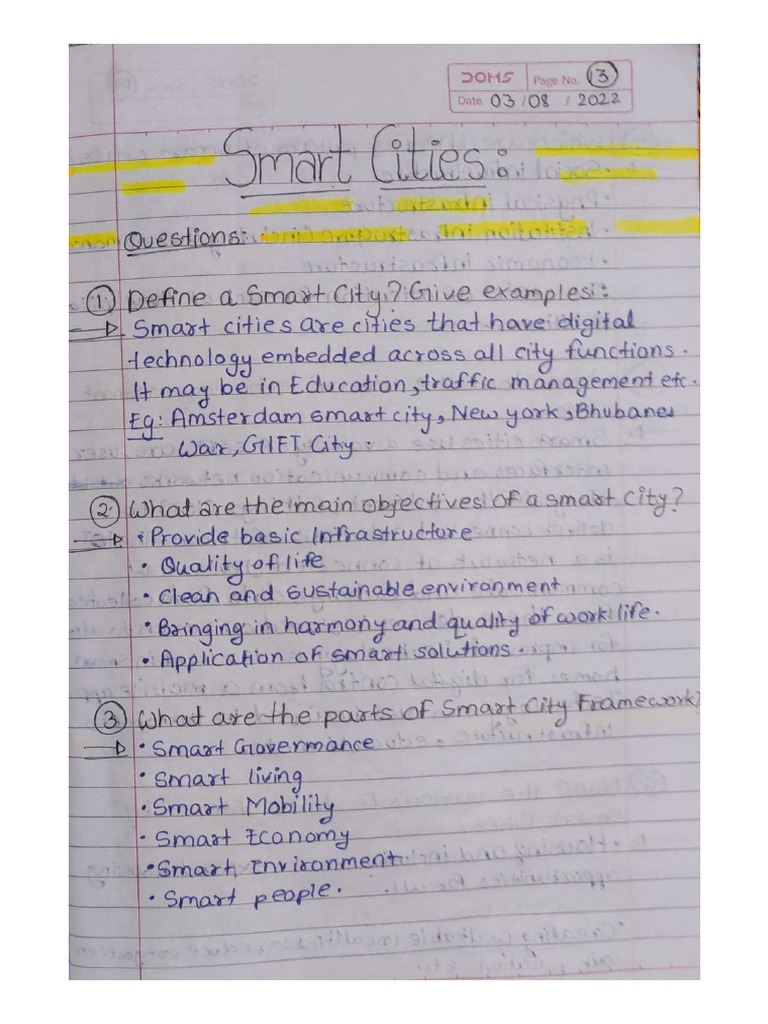 DOMS Page No. 3
Date 03 / 08 / 2022
Smart Cities:
Questions:
1. Define a Smart City? Give examples:
Smart cities are cities that have digital
technology embedded across all city functions.
It may be in Education, traffic management etc.
Eg: Amsterdam smart city, New york, Bhubanes
war, GIFT City.
2. What are the main objectives of a smart City?
• Provide basic Infrastructure
• Quality of life
• Clean and sustainable environment
• Bringing in harmony and quality of work life.
• Application of smart solutions.
3. What are the parts of Smart City Framework?
• Smart Govermance
• Smart living
• Smart Mobility
• Smart Economy
• Smart Environment
• Smart people.